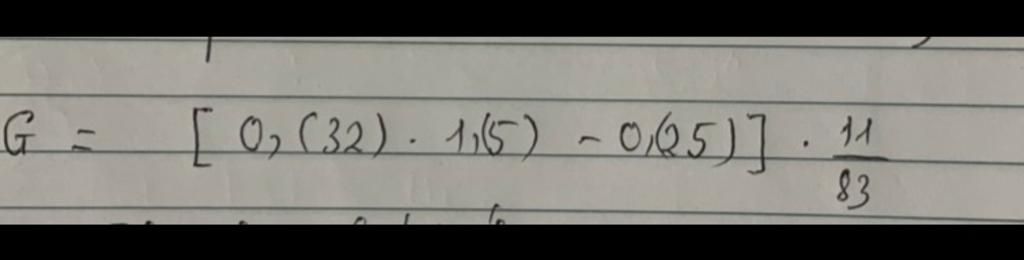 G = [ 0,(32) . 1,(5) - 0,(25) ] . 11/83